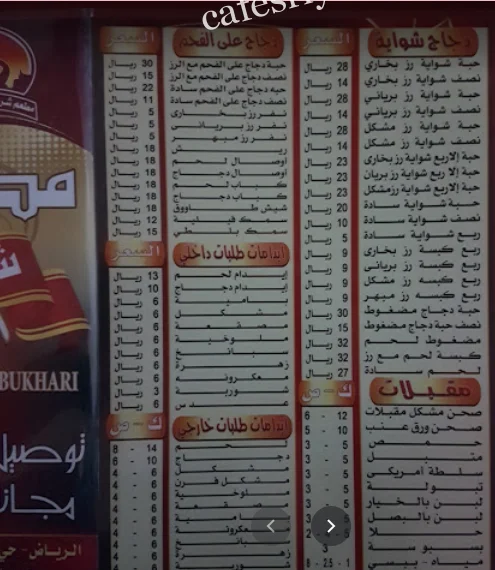 cafesny
دجاج شواية
السعر
حبة شواية رز بخاري 28 ريال
نصف شواية رز بخاري 14 ريال
حبة شواية رز برياني 28 ريال
نصف شواية رز برياني 14 ريال
حبة شواية رز مشكل 28 ريال
نصف شواية رز مشكل 14 ريال
حبة إلا ربع شواية رز بخاري 23 ريال
حبة إلا ربع شواية رز بريان 23 ريال
حبة إلا ربع شواية رز مشكل 23 ريال
حبة شواية سادة 20 ريال
نصف شواية سادة 10 ريال
ربع شواية سادة 5 ريال
ربع كبسة رز بخاري 9 ريال
ربع كبسة رز برياني 9 ريال
ربع كبسة رز مشكل 9 ريال
ربع كبسه رز مبهر 9 ريال
حبة دجاج مضغوط 30 ريال
نصف حبة دجاج مضغوط 15 ريال
مضغوط لحم 32 ريال
كبسة لحم مع رز 32 ريال
لحم سادة 27 ريال
مقبلات
ك - ص
صحن مشكل مقبلات 12 6
صحن ورق عنب 10 5
حمص 5 - 3
متبل 5 - 3
سلطة امريكي 5 - 3
تبولة 5 - 3
لبن بالخيار 5 - 3
لبن بالبصل
حلا
بسبوسة 3
مياه - بيبسي 1 - 2.5 - 8
دجاج على الفحم
السعر
حبة دجاج على الفحم مع الرز 30 ريال
نصف دجاج على الفحم مع الرز 15 ريال
حبه دجاج على الفحم سادة 22 ريال
نصف دجاج على الفحم سادة 11 ريال
نفر رز بخاري 5 ريال
نفر رز برياني 5 ريال
نفر رز مبهر 5 ريال
ريش 18 ريال
اوصال لحم 18 ريال
اوصال دجاج 18 ريال
كباب لحم 18 ريال
كباب دجاج 18 ريال
شيش طاووق 18 ريال
سمك فيلية 12 ريال
سمك بلطي 15 ريال
إيدامات طلبات داخلي
السعر
إيدام لحم 13 ريال
إيدام دجاج 10 ريال
بامية 6 ريال
مشكل 6 ريال
مصقعة 6 ريال
ملوخية 6 ريال
سبانخ 6 ريال
زهرة 6 ريال
معكرونة 6 ريال
شوربة 3 ريال
عدس 6 ريال
إيدامات طلبات خارجي
ك - ص
لحم 14 - 8
دجاج 10 - 6
مشكل 6 - 4
مشكل فرن 6 - 4
ملوخية 6 - 4
مصقعة 6 - 4
بامية 6 - 4
معكرونة 6 - 4
سبانخ 6 - 4
زهرة 6 - 4
شوربة 6 - 4
BUKHARI
توصيل
مجان
الرياض - حي